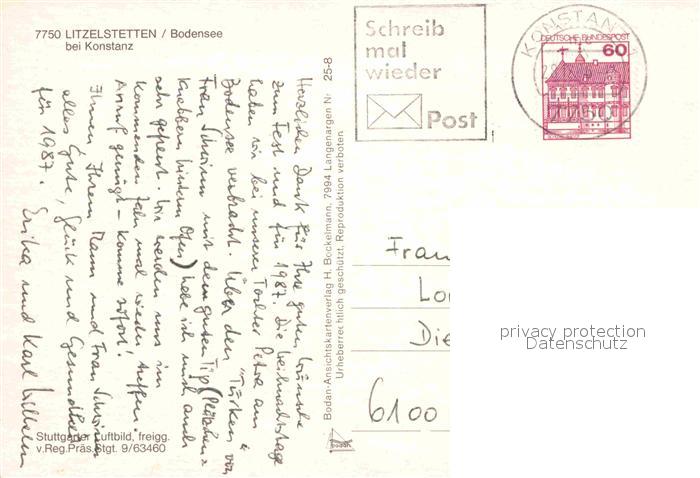 7750 LITZELSTETTEN / Bodensee
bei Konstanz
Schreib
mal
wieder
Post
KONSTANZ 1
7750
DEUTSCHE BUNDESPOST
60
Herzlichen Dank für Ihre guten Wünsche
zum Fest und für 1987. Die Weihnachtstage
haben wir bei unserer Tochter Petra am
Bodensee verbracht. Über den "Türken" von
Frau Schwinn mit dem guten Tip (Plätzchen
knabbern hinterm Ofen) habe ich mich auch
sehr gefreut. Wir werden uns im
kommenden Jahr mal wieder treffen.
Anruf genügt - komme sofort!
Ihnen, Ihrem Mann und Frau Schwinn
alles Gute, Glück und Gesundheit
für 1987.
Erika und Karl Wilhelm
Bodan-Ansichtskartenverlag H. Bockelmann, 7994 Langenargen Nr 25-8
Urheberrechtlich geschützt. Reproduktion verboten
Frau
Lo
Die
6100
privacy protection
Datenschutz
Stuttgarter Luftbild, freigg.
v.Reg.Präs.Stgt. 9/63460
bodan